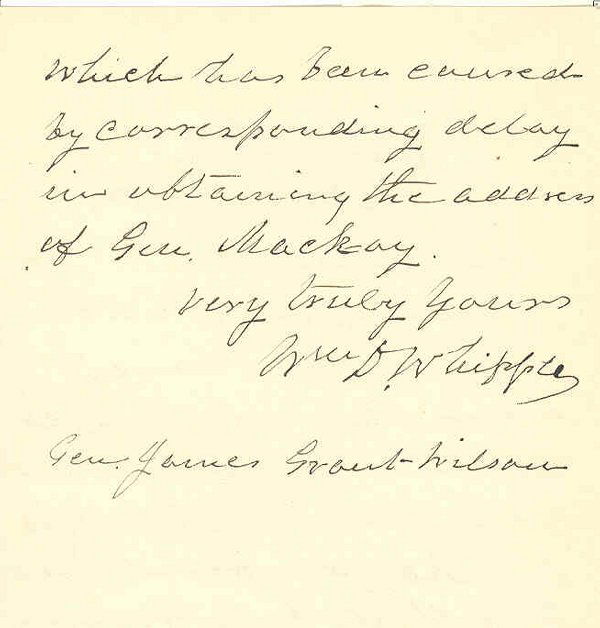 which has been caused
by corresponding delay
in obtaining the address
of Gen. Mackay.
Very truly Yours
Wm D. Whipple
Gen. James Grant Wilson